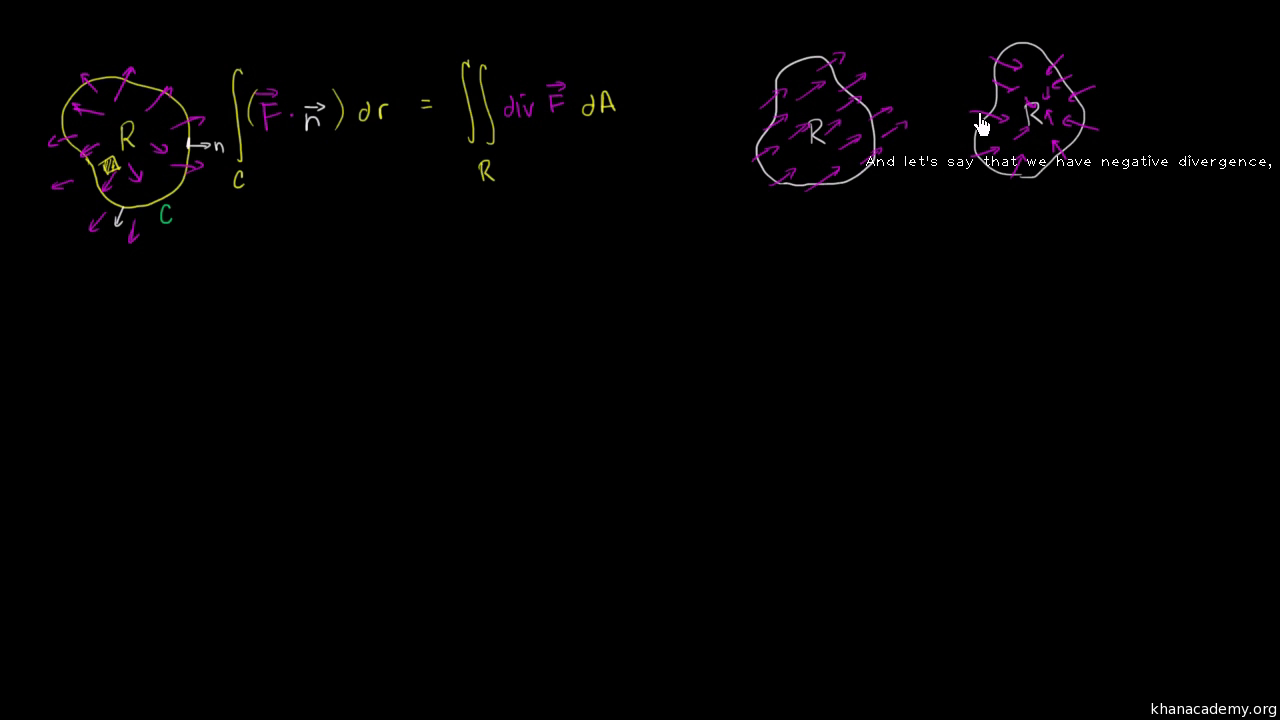 R
n
C
∫ (F⃗ · n⃗) dr = ∬ div F⃗ dA
C R
R
R
And let's say that we have negative divergence,
khanacademy.org